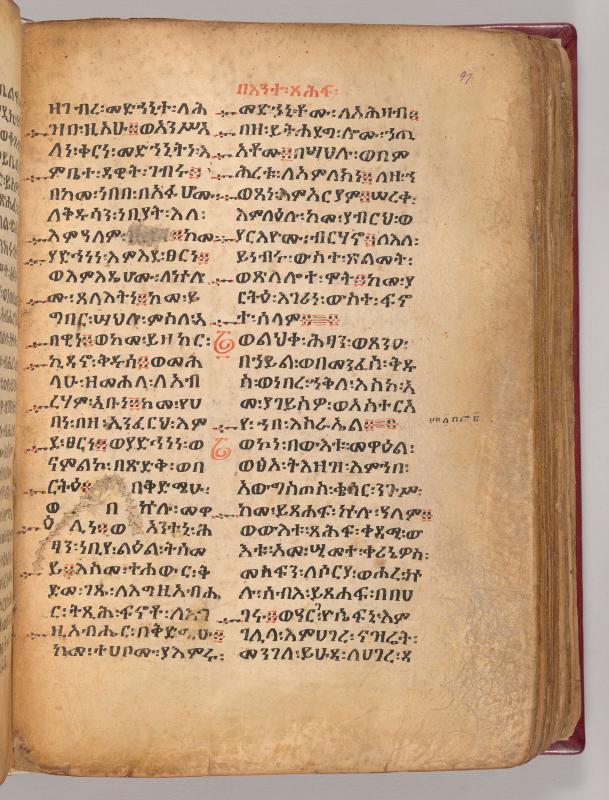 በእንተ፡ጸሕፋ፡
97
ዘገብረ፡መድኀኒተ፡ለሕ
ዝበ፡ዚአሁ፨ወአንሥአ
ለነ፡ቀርነ፡መድኀኒትነ፡እ
ምቤተ፡ዳዊት፡ገብሩ፨
በከመ፡ነበበ፡በአፈሆሙ፨
ለቅዱሳን፡ነቢያት፡እለ፡
እምዓለም፡ ፨ከመ፡
ያድኅነነ፡እምእደ፡ፀርነ፨
ወእምእዴሆሙ፡ለኵሉ
ሙ፡ጸላእትነ፨ከመ፡ይ
ግበር፡ሣህሉ፡ምስለ፡አ
በዊነ፨ወከመ፡ይዘከር፡
ኪዳኖ፡ቅዱሰ፨ወመሐ
ላሁ፡ዘመሐለ፡ለአብ
ርሃም፡አቡነ፨ከመ፡የሀ
በነ፡ዘእንፈርህ፡እም
ደ፡ፀርነ፨ወያድኅነነ፡ወ
ናምልኮ፡በጽድቅ፡ወበ
ርትዕ፨ በቅድሜሁ፡
ወ በ ኵሉ፡መዋ
ዕ ሊነ፨ወ አንተኒ፡ሕ
ፃን፡ነቢየ፡ልዑል፡ትሰመ
ይ፨እስመ፡ተሐውር፡ቅ
ድመ፡ገጹ፡ለእግዚአብሔ
ር፡ትጺሕ፡ፍኖቶ፡ለእግ
ዚአብሔር፡በቅድሜሁ፨
ከመ፡ተሀቦሙ፡ያእምሩ፡
መድኀኒቶሙ፡ለአሕዛብ፨
በዘ፡ይትኀደግ፡ሎሙ፡ኀጢ
አቶሙ፨በሣህሉ፡ወበም
ሕረቱ፡ለአምላክነ፨ለዘ፡ኀ
ወጸነ፡እምአርያም፨ሠረቀ፡
እምልዑል፡ከመ፡ያብርህ፡ወ
ያርእዮሙ፡ብርሃኖ፨ለእለ፡
ይነብሩ፡ውስተ፡ጽልመት፡
ወጽላሎተ፡ሞት፨ከመ፡ያ
ርትዕ፡እገሪነ፡ውስተ፡ፍኖ
ተ፡ሰላም፨
ወልህቀ፡ሕፃን፡ወጸንዐ፡
በኃይል፡ወበመንፈስ፡ቅዱ
ስ፡ወነበረ፡ገዳመ፡እስከ፡አ
መ፡ያገይስዎ፡ወአስተርአ
የ፡ኀበ፡እስራኤል፨
ወኮነ፡በውእቱ፡መዋዕል፡
ወፅአ፡ትእዛዝ፡እምኀበ፡
አውግስጦስ፡ቄሳር፡ንጉሥ፡
ከመ፡ይጸሐፍ፡ኵሉ፡ዓለም፨
ወውእቱ፡ጸሐፍ፡ቀዳሚ፡ው
እቱ፡አመ፡ሢመተ፡ቀሬኔዎስ፡
መስፍን፡ለሶርያ፡ወሐረ፡ኵ
ሉ፡ሰብእ፡ይጸሐፍ፡በበሀ
ገሩ፨ወዓርገ፡ዮሴፍኒ፡እም
ገሊላ፡እምሀገረ፡ናዝሬት፡
መንገለ፡ይሁዳ፡ለሀገረ፡ዳ